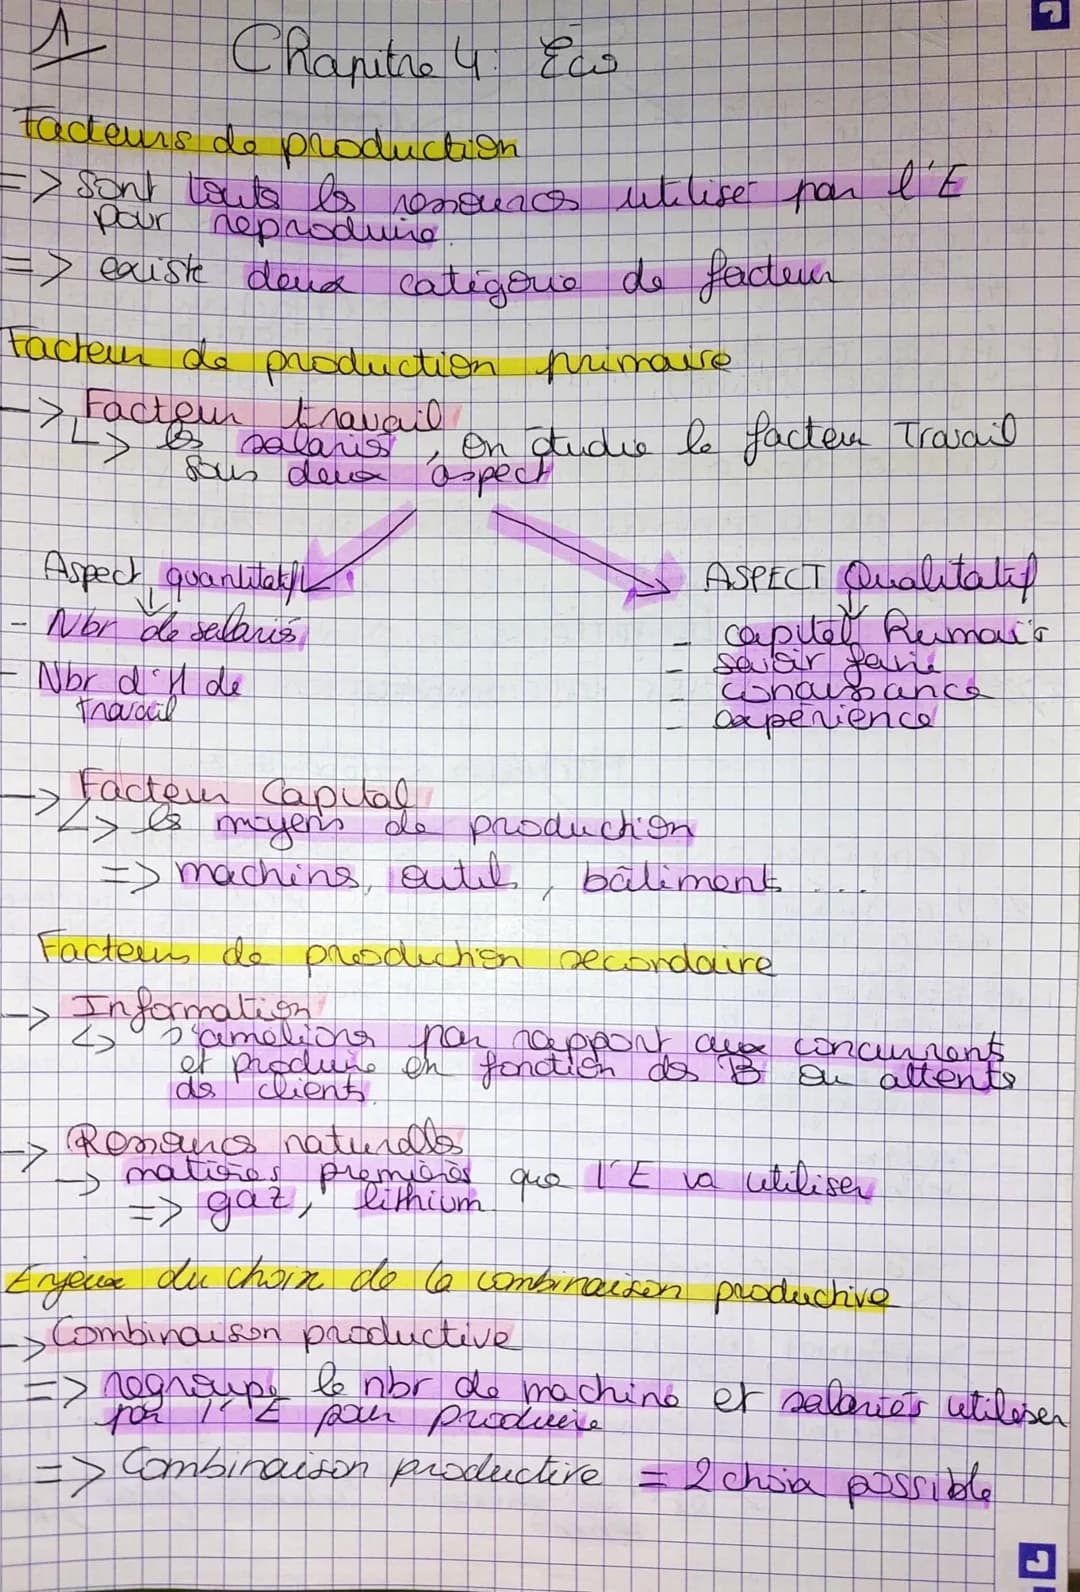 1
Chapitre 4: Éco
Facteurs de production
=> sont touts les ressources utiliser par l'E
pour reproduire.
=> existe deux catégorie de facteur
Facteur de production primaire
-> Facteur travail
↳ les salariés, on étudie le facteur Travail
sous deux aspect
Aspect quantitatif
- Nbr de salariés
- Nbr d'H de
travail
ASPECT Qualitatif
- capital Humais
- savoir faire
- conaissance
- expérience
-> Facteur Capital
↳ les moyens de production
=> machines, outil, bâtiment ....
Facteurs de production secondaire
-> Information
↳ s'améliorer par rapport aux concurrents
et produire en fonction des B ou attents
des clients.
-> Ressources naturelles
-> matières premières que l'E va utiliser
=> gaz, lithium.
Enjeux du choix de la combinaison productive
-> Combinaison productive
=> regroupe le nbr de machine et salariés utiliser
par l'E pour produire
=> Combinaison productive = 2 choix possible